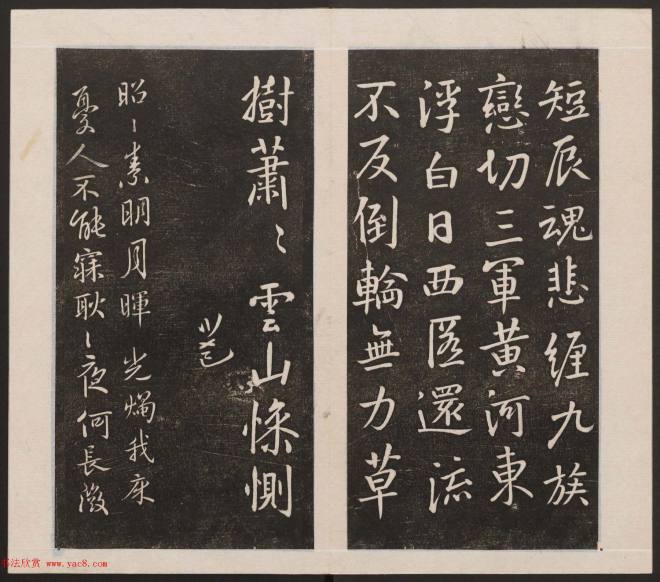 短辰魂悲缠九族
戀切三軍黃河東
浮白日西匿還流
不反倒輪無力草
樹蕭〻雲山慘惻
昭〻素明月暉光燭我床
憂人不能寐耿〻夜何長微
书法欣赏 www.yac8.com